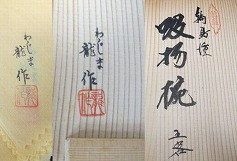 わじま
龍作
わじま
龍作
輪島塗
吸物椀
五客